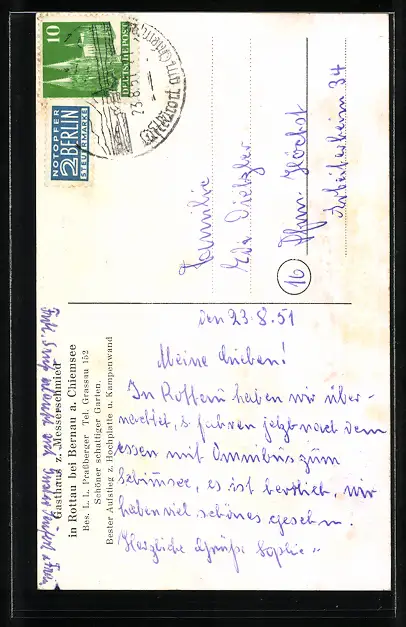 10
DEUTSCHE POST
NOTOPFER
2 BERLIN
STEUERMARKE
23.8.51
Familie
Dietzler
Ffm. Höchst
34
16
Gasthaus z. Messerschmied
in Rottau bei Bernau a. Chiemsee
Bes. L. L. Praßberger Tel. Grassau 152
Schöner schattiger Garten.
Bester Aufstieg z. Hochplatte u. Kampenwand
den 23.8.51
Meine Lieben!
In Rottau haben wir über-
nachtet, u. fahren jetzt nach dem
essen mit Omnibus zum
es ist herrlich, wir
haben viel schönes gesehn.
Herzliche Grüße Sophie